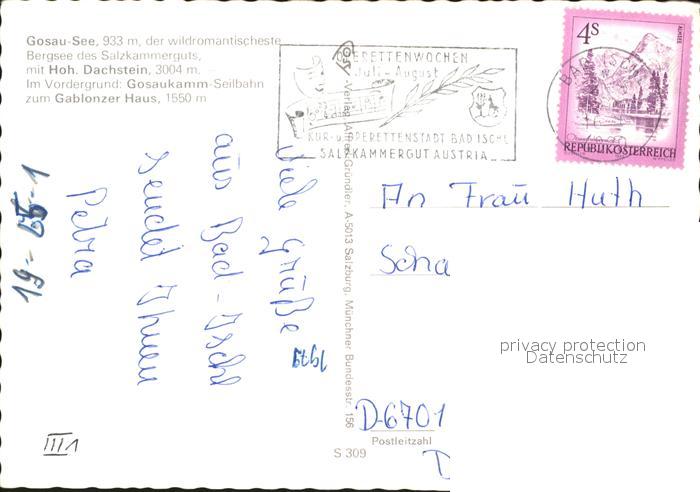 Gosau-See, 933 m, der wildromantischeste
Bergsee des Salzkammerguts,
mit Hoh. Dachstein, 3004 m.
Im Vordergrund: Gosaukamm-Seilbahn
zum Gablonzer Haus, 1550 m
OPERETTENWOCHEN
Juli - August
KUR- u. OPERETTENSTADT BAD ISCHL
SALZKAMMERGUT AUSTRIA
BAD ISCHL
4S
ALMSEE
REPUBLIK ÖSTERREICH
Viele Grüße
aus Bad-Ischl
sendet Ihnen
Petra
1979
19-
III/1
Verlag Alfred Gründler, A-5013 Salzburg, Münchner Bundesstr. 156
An Frau Huth
Scha
privacy protection
Datenschutz
D-6701
Postleitzahl
S 309